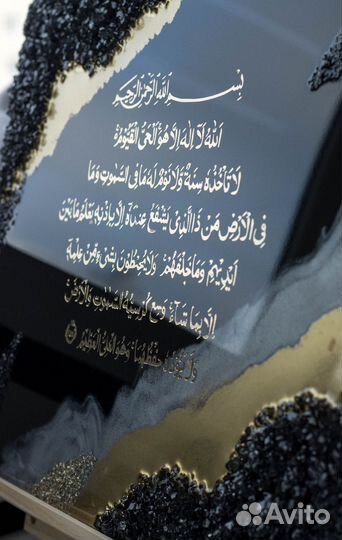 بِسْمِ اللَّهِ الرَّحْمَٰنِ الرَّحِيمِ
اللَّهُ لَا إِلَٰهَ إِلَّا هُوَ الْحَيُّ الْقَيُّومُ
لَا تَأْخُذُهُ سِنَةٌ وَلَا نَوْمٌ لَهُ مَا فِي السَّمَٰوَٰتِ وَمَا
فِي الْأَرْضِ مَنْ ذَا الَّذِي يَشْفَعُ عِنْدَهُ إِلَّا بِإِذْنِهِ يَعْلَمُ مَا بَيْنَ
أَيْدِيهِمْ وَمَا خَلْفَهُمْ وَلَا يُحِيطُونَ بِشَيْءٍ مِنْ عِلْمِهِ
إِلَّا بِمَا شَاءَ وَسِعَ كُرْسِيُّهُ السَّمَٰوَٰتِ وَالْأَرْضَ
وَلَا يَئُودُهُ حِفْظُهُمَا وَهُوَ الْعَلِيُّ الْعَظِيمُ
Avito